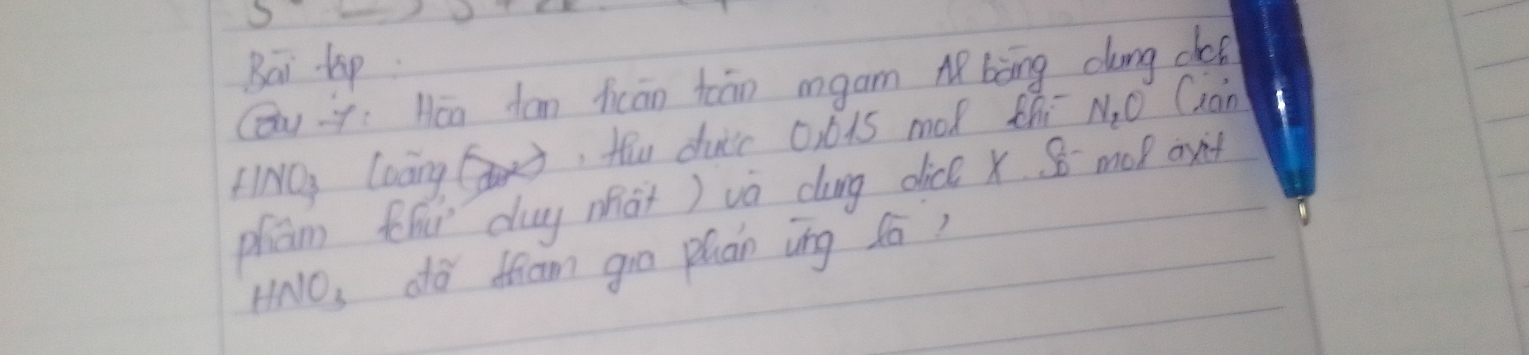 Bài tập :
Câu 7: Hòa tan hoàn toàn mgam Al bằng dung dịch
HNO3 loãng , thu được 0,015 mol khí N2O (sản
phẩm khử duy nhất ) và dung dịch X. Số mol axit
HNO3 đã tham gia phản ứng là ?